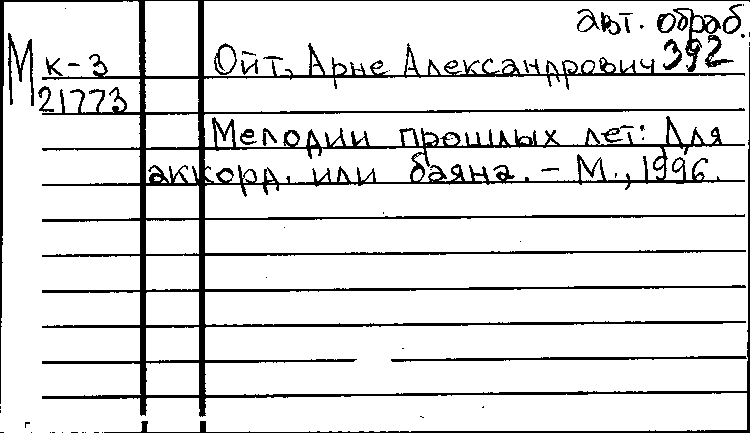 авт. обраб.
М к-3 Ойт, Арне Александрович 392
21773
Мелодии прошлых лет: Для
аккорд. или баяна. - М., 1996.